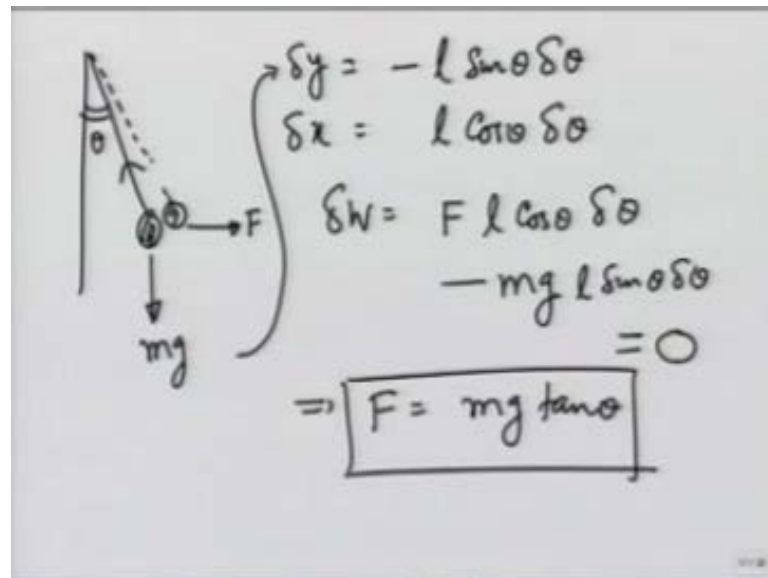 δy = - l sinθ δθ
δx = l cosθ δθ
θ
F
δW = F l cosθ δθ
- mg l sinθ δθ
mg
= 0
⇒ F = mg tanθ